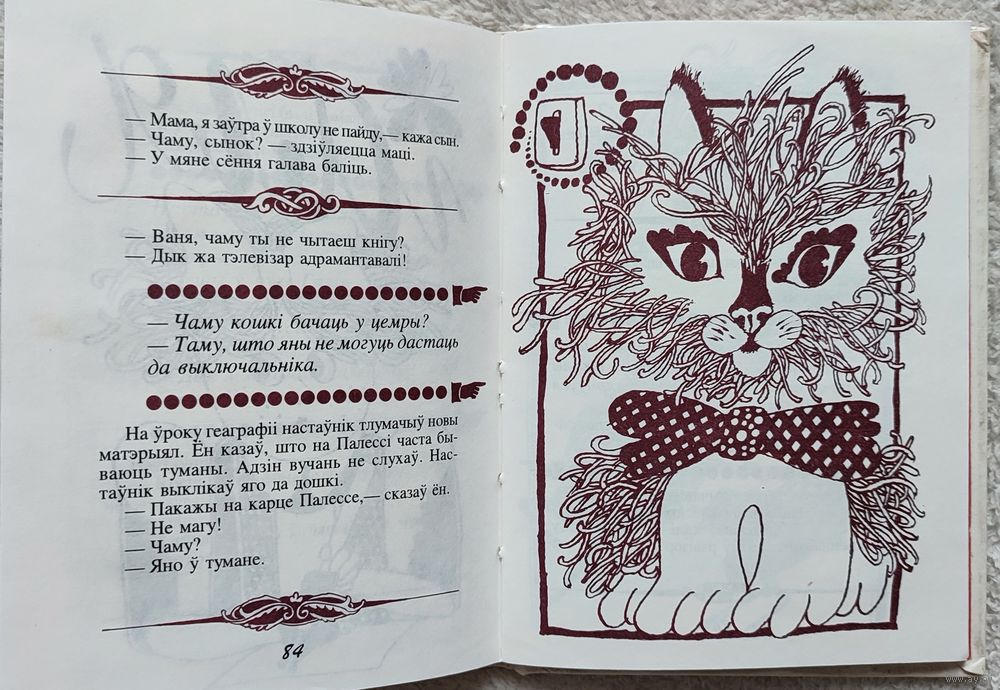 — Мама, я заўтра ў школу не пайду,— кажа сын.
— Чаму, сынок? — здзіўляецца маці.
— У мяне сёння галава баліць.
— Ваня, чаму ты не чытаеш кнігу?
— Дык жа тэлевізар адрамантавалі!
— Чаму кошкі бачаць у цемры?
— Таму, што яны не могуць дастаць
да выключальніка.
На ўроку геаграфіі настаўнік тлумачыў новы
матэрыял. Ён казаў, што на Палессі часта бы-
ваюць туманы. Адзін вучань не слухаў. Нас-
таўнік выклікаў яго да дошкі.
— Пакажы на карце Палессе,— сказаў ён.
— Не магу!
— Чаму?
— Яно ў тумане.
84